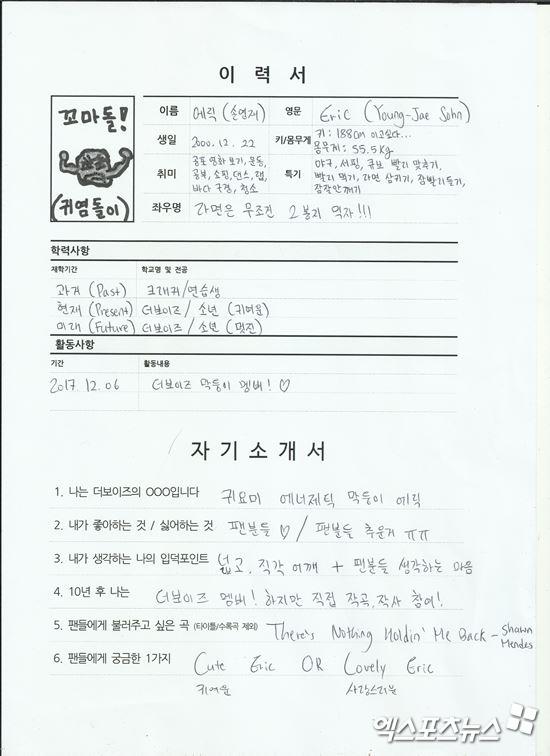 이 력 서
꼬마돌!
(귀염돌이)
이름 에릭 (손영재) 영문 Eric (Young-Jae Sohn)
생일 2000. 12. 22 키/몸무게 키: 188cm 이고싶다... 몸무게: 55.5kg
취미 공포 영화 보기, 운동, 공부, 쇼핑, 댄스, 랩, 바다 구경, 청소
특기 야구, 서핑, 큐브 빨리 맞추기, 빨리 먹기, 라면 삼키기, 잠 빨리 들기, 잠 잘 안깨기
좌우명 라면은 무조건 2봉지 먹자!!!
학력사항
재학기간 학교명 및 전공
과거 (Past) 크래커/연습생
현재 (Present) 더보이즈/소년 (귀여운)
미래 (Future) 더보이즈/소년 (멋진)
활동사항
기간 활동내용
2017. 12. 06 더보이즈 막둥이 멤버! ♡
자 기 소 개 서
1. 나는 더보이즈의 OOO입니다 귀요미 에너제틱 막둥이 에릭
2. 내가 좋아하는 것 / 싫어하는 것 팬분들 ♡ / 팬분들 추운거 ㅠㅠ
3. 내가 생각하는 나의 입덕포인트 넓고, 직각 어깨 + 팬분들 생각하는 마음
4. 10년 후 나는 더보이즈 멤버! 하지만 직접 작곡, 작사 참여!
5. 팬들에게 불러주고 싶은 곡 (타이틀/수록곡 제외) There's Nothing Holdin' Me Back - Shawn Mendes
6. 팬들에게 궁금한 1가지 Cute Eric OR Lovely Eric
귀여운 사랑스러운
엑스포츠뉴스